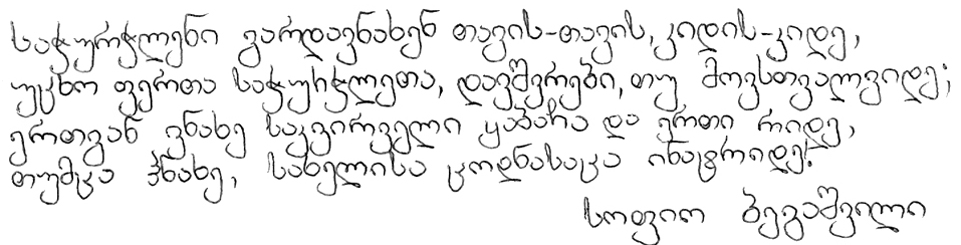 საჭურჭლენი გარდავნახენ თავის-თავის, კიდის-კიდე,
უცხო ფერთა საჭურჭლეთა, დავშვრები, თუ მოვსთვალვიდე;
ერთგან ვნახე საკვირველი ყაბარჩა და ერთი რიდე,
თუმცა ჰნახე, სახელისა ცოდნასაცა ინატრიდე!
სოფიო ბეგაშვილი